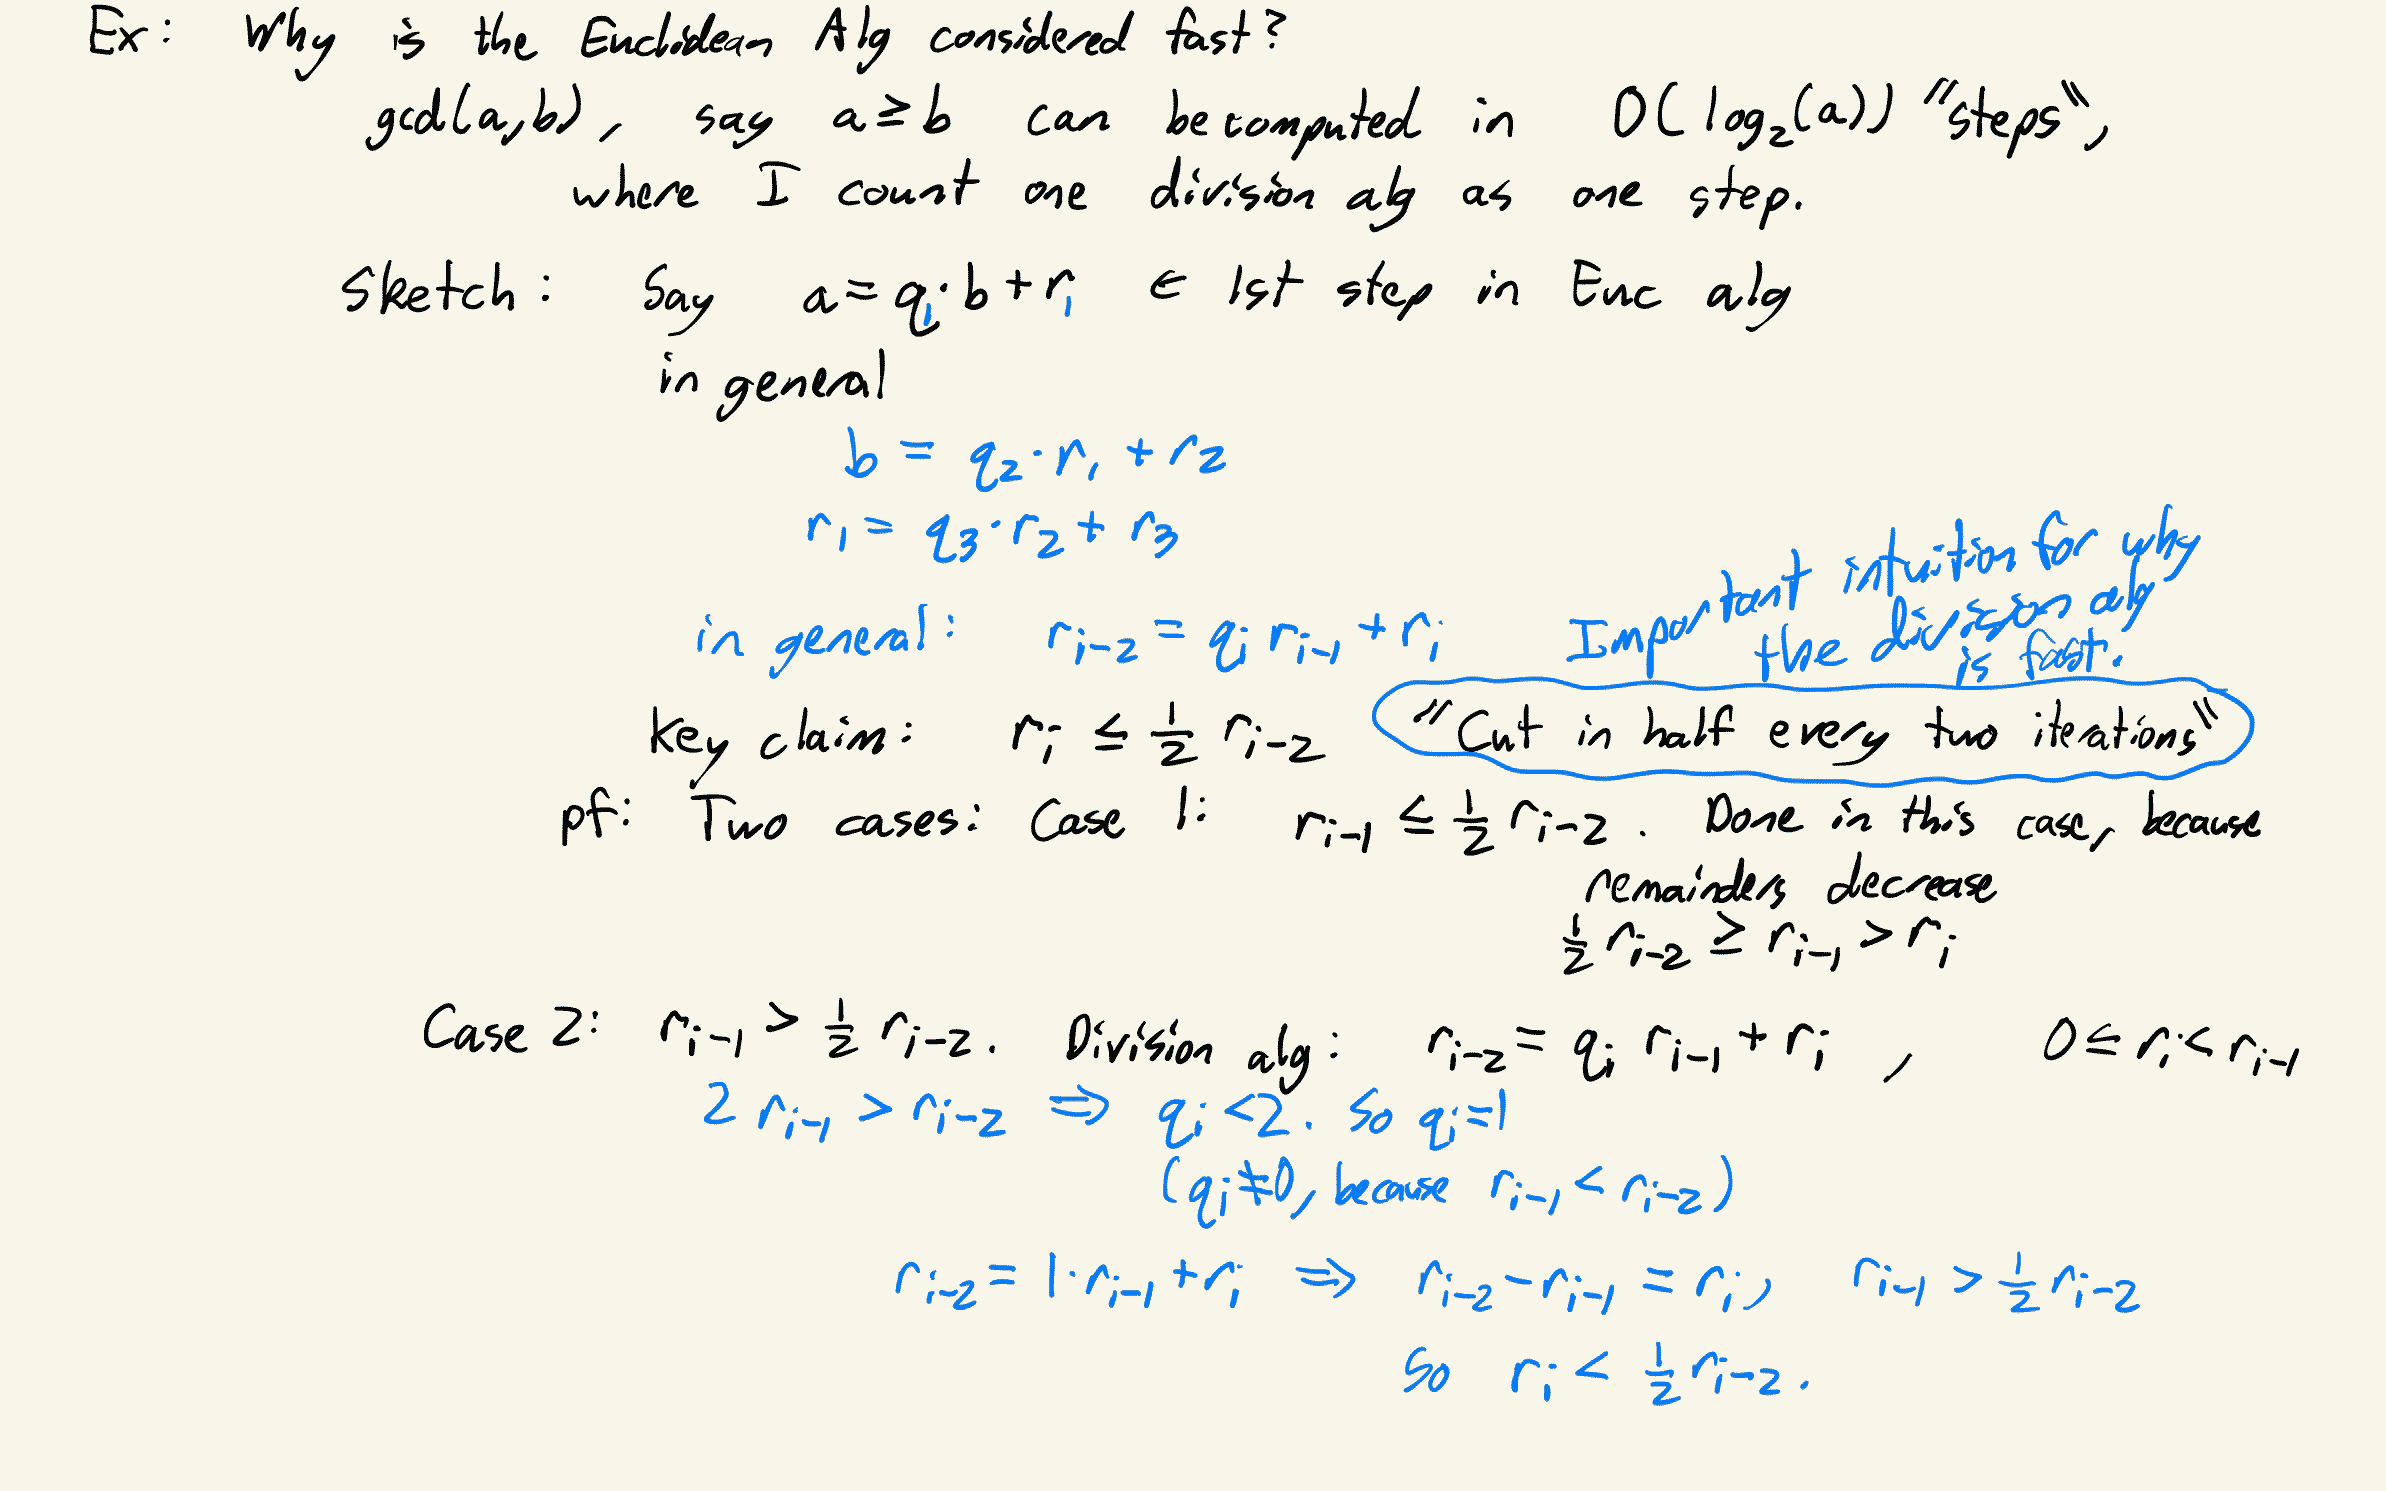 Ex: Why is the Euclidean Alg considered fast?
gcd(a,b), say a ≥ b can be computed in O(log₂(a)) "steps",
where I count one division alg as one step.
Sketch: Say a = q₁·b + r₁ ← 1st step in Euc alg
in general
b = q₂·r₁ + r₂
r₁ = q₃·r₂ + r₃
in general: rᵢ₋₂ = qᵢ rᵢ₋₁ + rᵢ
Important intuition for why
the division alg
is fast.
key claim: rᵢ ≤ 1/2 rᵢ₋₂ "Cut in half every two iterations"
pf: Two cases: Case 1: rᵢ₋₁ ≤ 1/2 rᵢ₋₂. Done in this case, because
remainders decrease
1/2 rᵢ₋₂ ≥ rᵢ₋₁ > rᵢ
Case 2: rᵢ₋₁ > 1/2 rᵢ₋₂. Division alg: rᵢ₋₂ = qᵢ rᵢ₋₁ + rᵢ, 0 ≤ rᵢ < rᵢ₋₁
2 rᵢ₋₁ > rᵢ₋₂ ⇒ qᵢ < 2. So qᵢ = 1
(qᵢ ≠ 0, because rᵢ₋₁ < rᵢ₋₂)
rᵢ₋₂ = 1·rᵢ₋₁ + rᵢ ⇒ rᵢ₋₂ − rᵢ₋₁ = rᵢ, rᵢ₋₁ > 1/2 rᵢ₋₂
So rᵢ < 1/2 rᵢ₋₂.